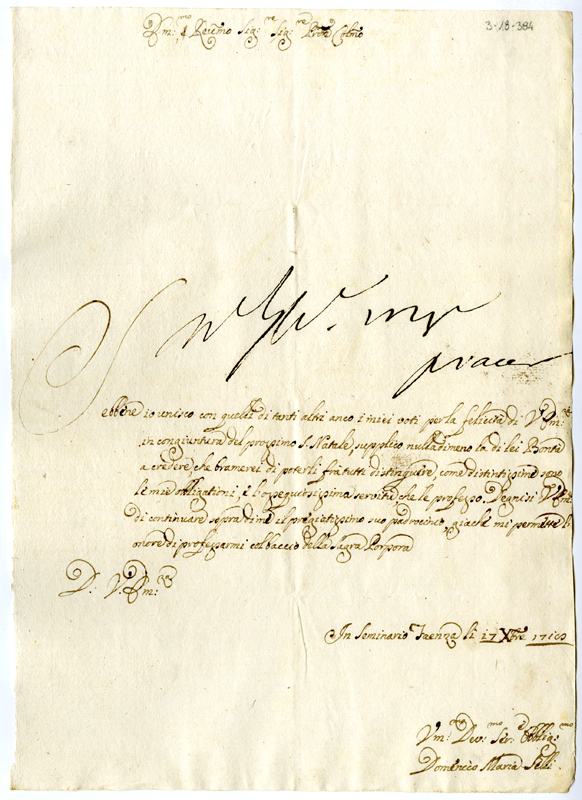 3-18-384
Em:mo e Revemo Sig:re Sig:re Pron Colmo
piacer
Sebbene io unisco con quelli di tanti altri anco i miei voti per la felicità di V. Em:za
in congiuntura del prossimo S. Natale, supplico nulladimeno la di lei Bontà
a credere, che bramerei di poterli frà tutti distinguere, come distintissime sono
le mie obligationi, e l'ossequiosissima servitù che le professo. Degnisi V. Em:za
di continuare sopra di me il pregiatissimo suo padrocinio, giache mi permette l'
onore di professarmi col baccio della Sagra Porpora
D: V: Em:za
In Seminario Faenza li 17 Xbre
Vm:mo Dev:mo Ser:e Obblig:mo
Domenico Maria Selli